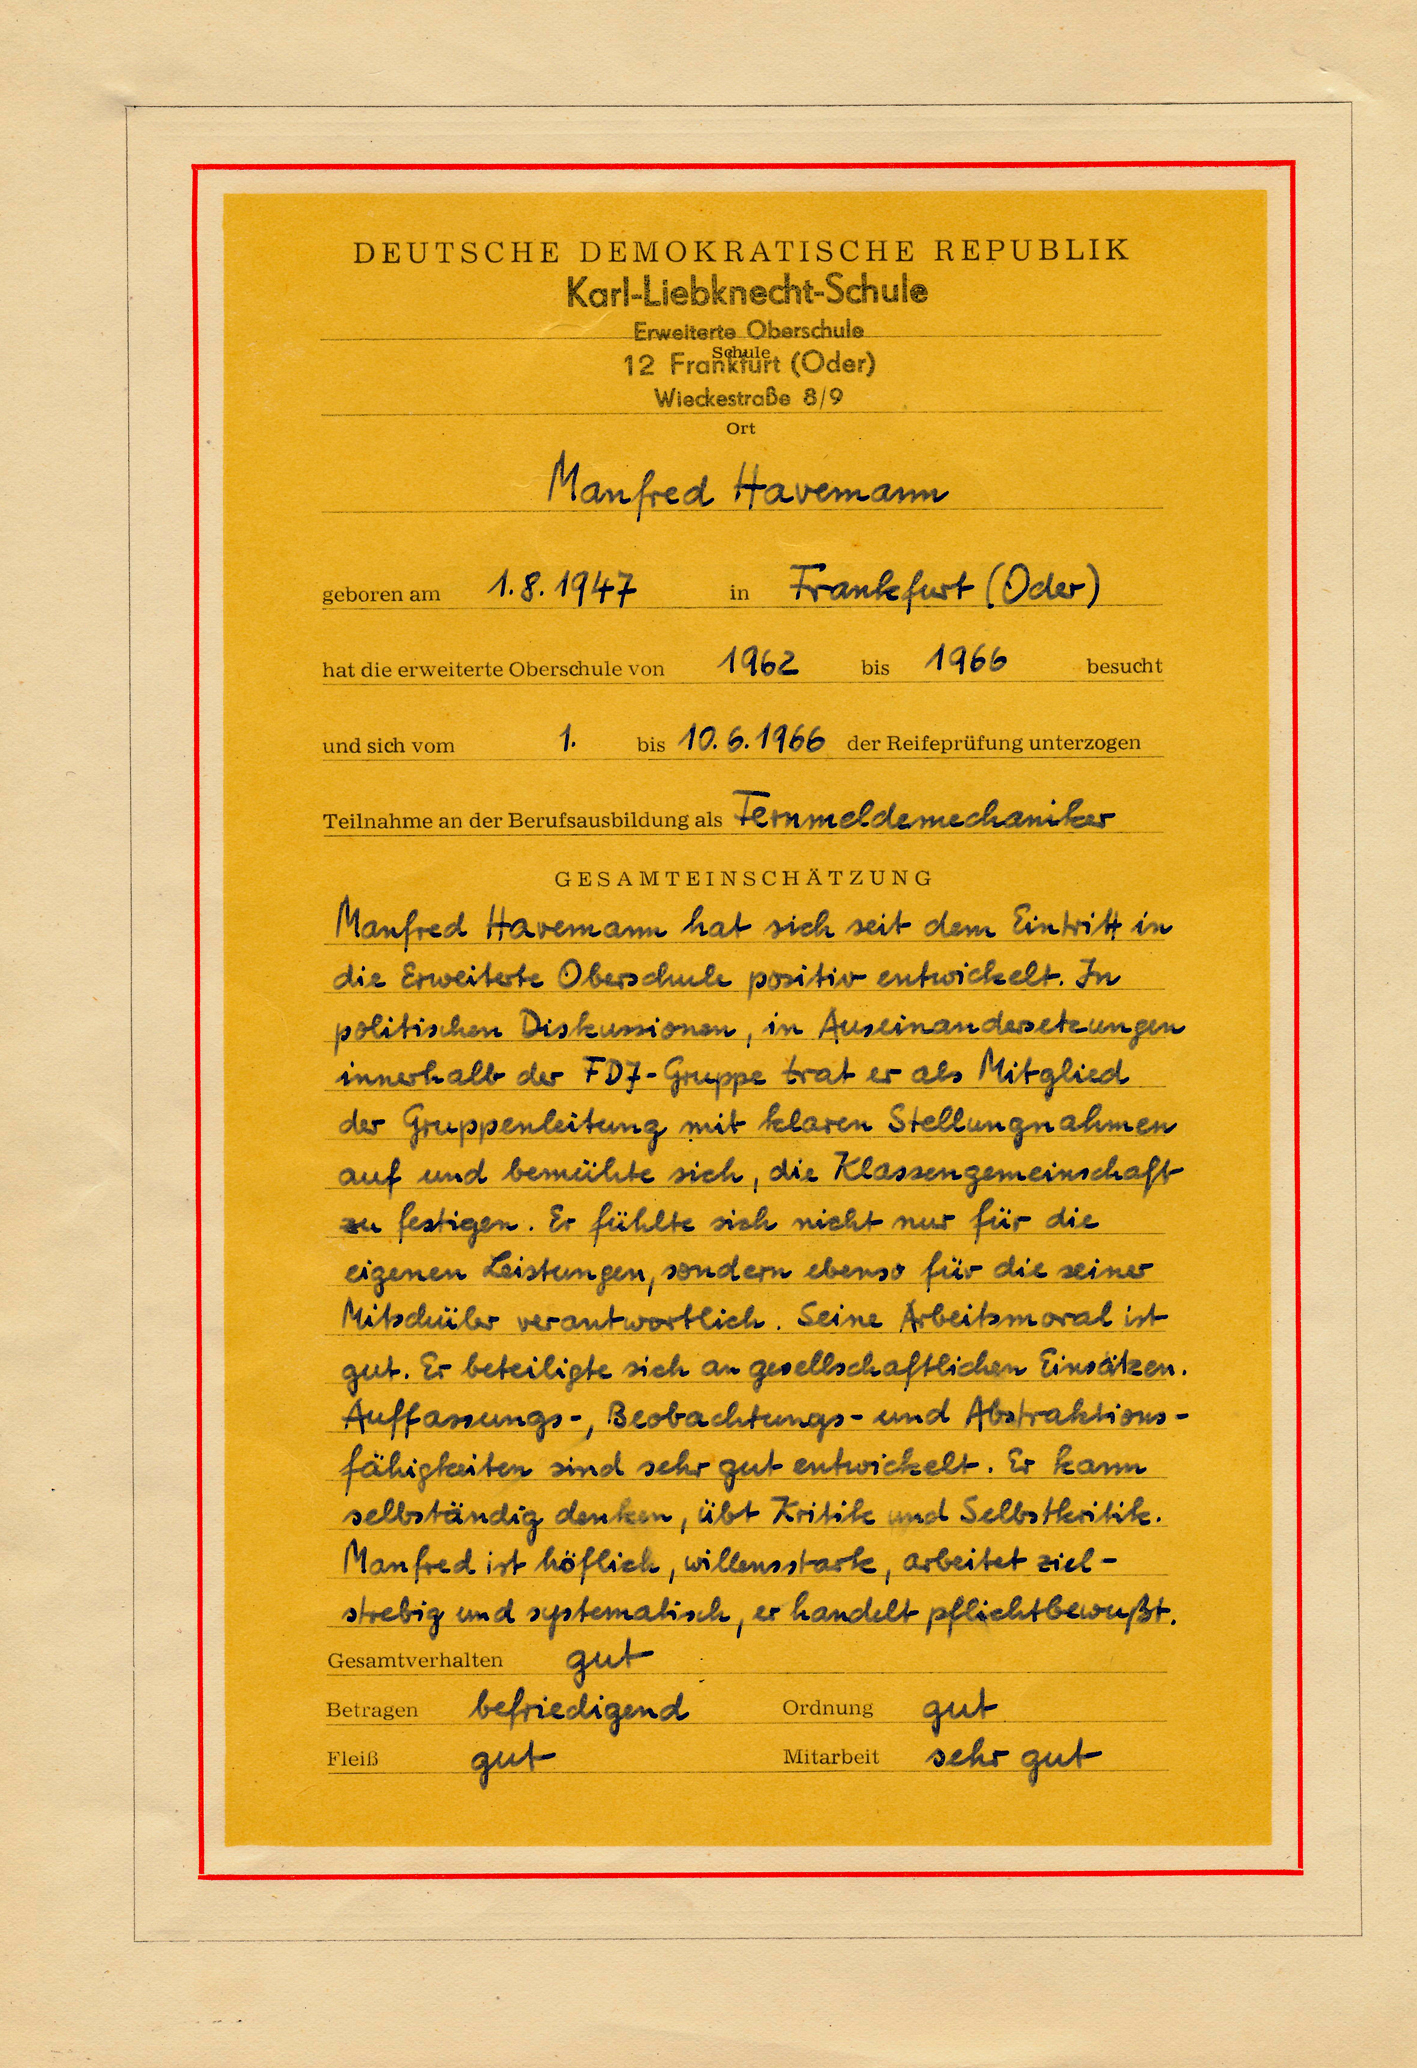 DEUTSCHE DEMOKRATISCHE REPUBLIK
Karl-Liebknecht-Schule
Erweiterte Oberschule
Schule
12 Frankfurt (Oder)
Wieckestraße 8/9
Ort
Manfred Havemann
geboren am 1.8.1947 in Frankfurt (Oder)
hat die erweiterte Oberschule von 1962 bis 1966 besucht
und sich vom 1. bis 10.6.1966 der Reifeprüfung unterzogen
Teilnahme an der Berufsausbildung als Fernmeldemechaniker
GESAMTEINSCHÄTZUNG
Manfred Havemann hat sich seit dem Eintritt in
die Erweiterte Oberschule positiv entwickelt. In
politischen Diskussionen, in Auseinandersetzungen
innerhalb der FDJ-Gruppe trat er als Mitglied
der Gruppenleitung mit klaren Stellungnahmen
auf und bemühte sich, die Klassengemeinschaft
zu festigen. Er fühlte sich nicht nur für die
eigenen Leistungen, sondern ebenso für die seiner
Mitschüler verantwortlich. Seine Arbeitsmoral ist
gut. Er beteiligte sich an gesellschaftlichen Einsätzen.
Auffassungs-, Beobachtungs- und Abstraktions-
fähigkeiten sind sehr gut entwickelt. Er kann
selbständig denken, übt Kritik und Selbstkritik.
Manfred ist höflich, willensstark, arbeitet ziel-
strebig und systematisch, er handelt pflichtbewußt.
Gesamtverhalten gut
Betragen befriedigend Ordnung gut
Fleiß gut Mitarbeit sehr gut